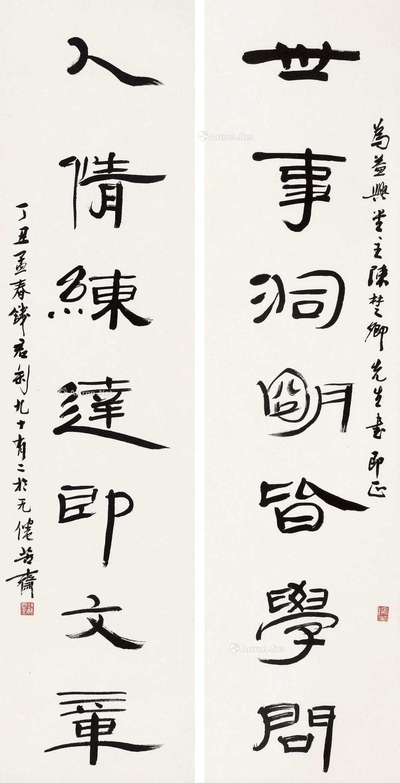 世事洞明皆學問
為益興堂主陳楚卿先生書即正
人情練達即文章
丁丑孟春錢君匋九十有二於无倦苦齋